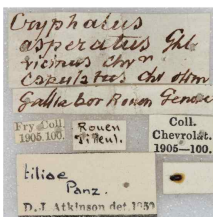 Cryphalus
asperatus Ghl
vicinus chvr
chv olim
Gallia bor Rouen
Fry Coll.
1905.100.
Rouen
Tilleul.
Coll.
Chevrolat.
1905—100.
tiliae
Panz.
D.J. Atkinson det 195